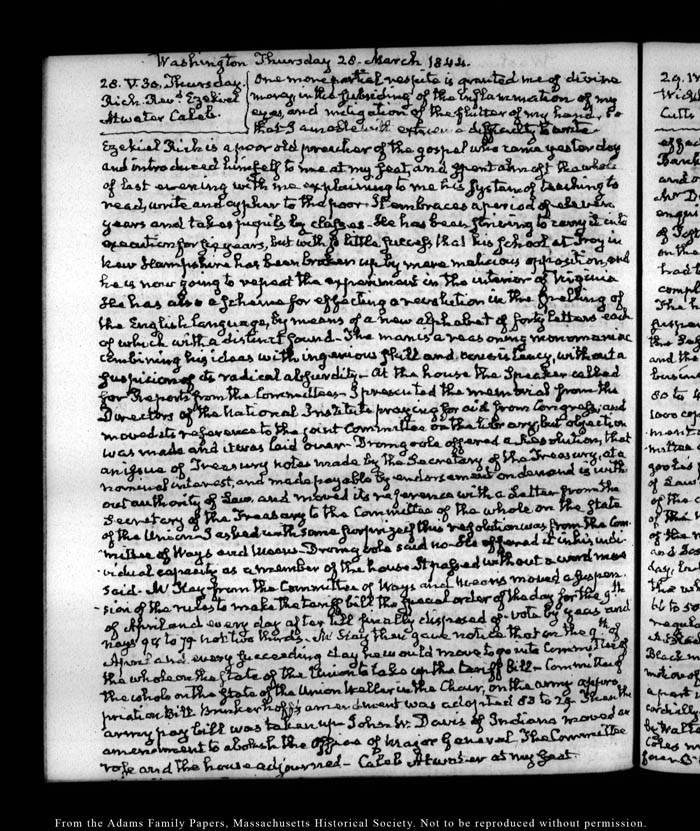 Washington Thursday 28. March 1844.
28. V. 30. Thursday.
Rich. Revd. Ezekiel
Atwater Caleb.
One more partial respite is granted me of divine
mercy in the subsiding of the inflammation of my
eyes, and mitigation of the flutter of my hand, so
that I am able with extreme difficulty to write
Ezekiel Rich is a poor old preacher of the gospel who came yesterday
and introduced himself to me at my seat, and spent almost the whole
of last evening with me explaining to me his system of teaching to
read, write and cypher to the poor. It embraces a period of eleven
years and takes pupils by classes. He has been striving to carry it into
execution for six years, but with so little success that his school at Troy in
New Hampshire has been broken up by mere malicious opposition, and
he is now going to repeat the experiment in the interior of Virginia
He has also a scheme for effecting a revolution in the spelling of
the English language, by means of a new alphabet of forty letters each
of which with a distinct sound. The man is a reasoning monomaniac
combining his ideas with ingenious skill and consistency, without a
suspicion of its radical absurdity. At the house the Speaker called
for Reports from the Committees. I presented the memorial from the
Directors of the National Institute praying for aid from Congress, and
moved its reference to the joint Committee on the Library, but objection
was made and it was laid over. Dromgoole offered a Resolution, that
an issue of Treasury notes made by the Secretary of the Treasury, at a
nominal interest, and made payable by endorsement on demand is with
out authority of Law, and moved its reference with a Letter from the
Secretary of the Treasury to the Committee of the whole on the State
of the Union. I asked with some surprize if this resolution was from the Com
mittee of Ways and Means. Dromgoole said no. He offered it in his indi-
vidual capacity as a member of the house. It passed without a word more
said. McKay from the Committee of Ways and Means moved a suspen-
sion of the rules to make the tariff bill the special order of the day for the 9th
of April and every day after till finally disposed of. vote by yeas and
nays 94 to 79 not two thirds. McKay then gave notice that on the 9th of
April and every succeeding day he would move to go into Committee of
the whole on the State of the Union to take up the tariff Bill. Committee of
the whole on the State of the Union Weller in the Chair, on the army appro
priation Bill Brinkerhoff's amendment was adopted 83 to 29. Then the
army pay bill was taken up. John W. Davis of Indiana moved an
amendment to abolish the Office of Major General The Committee
rose and the house adjourned. Caleb Atwater at my seat.
From the Adams Family Papers, Massachusetts Historical Society. Not to be reproduced without permission.